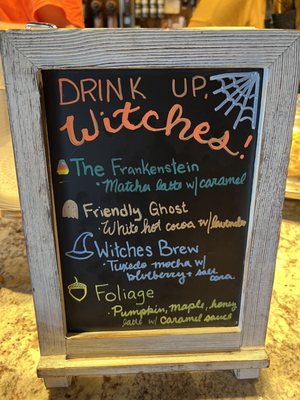 DRINK UP,
Witches!
The Frankenstein
• Matcha latte w/ caramel
Friendly Ghost
• White hot cocoa w/ lavender
Witches Brew
• Tuxedo mocha w/
blueberry + salt
Foliage
• Pumpkin, maple, honey
latte w/ Caramel sauce